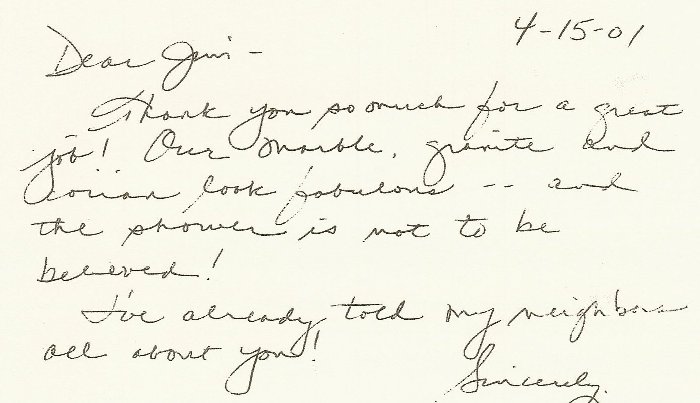 4-15-01
Dear Jim -
Thank you so much for a great
job! Our marble, granite and
corian look fabulous -- and
the shower is not to be
believed!
I've already told my neighbors
all about you!
Sincerely,